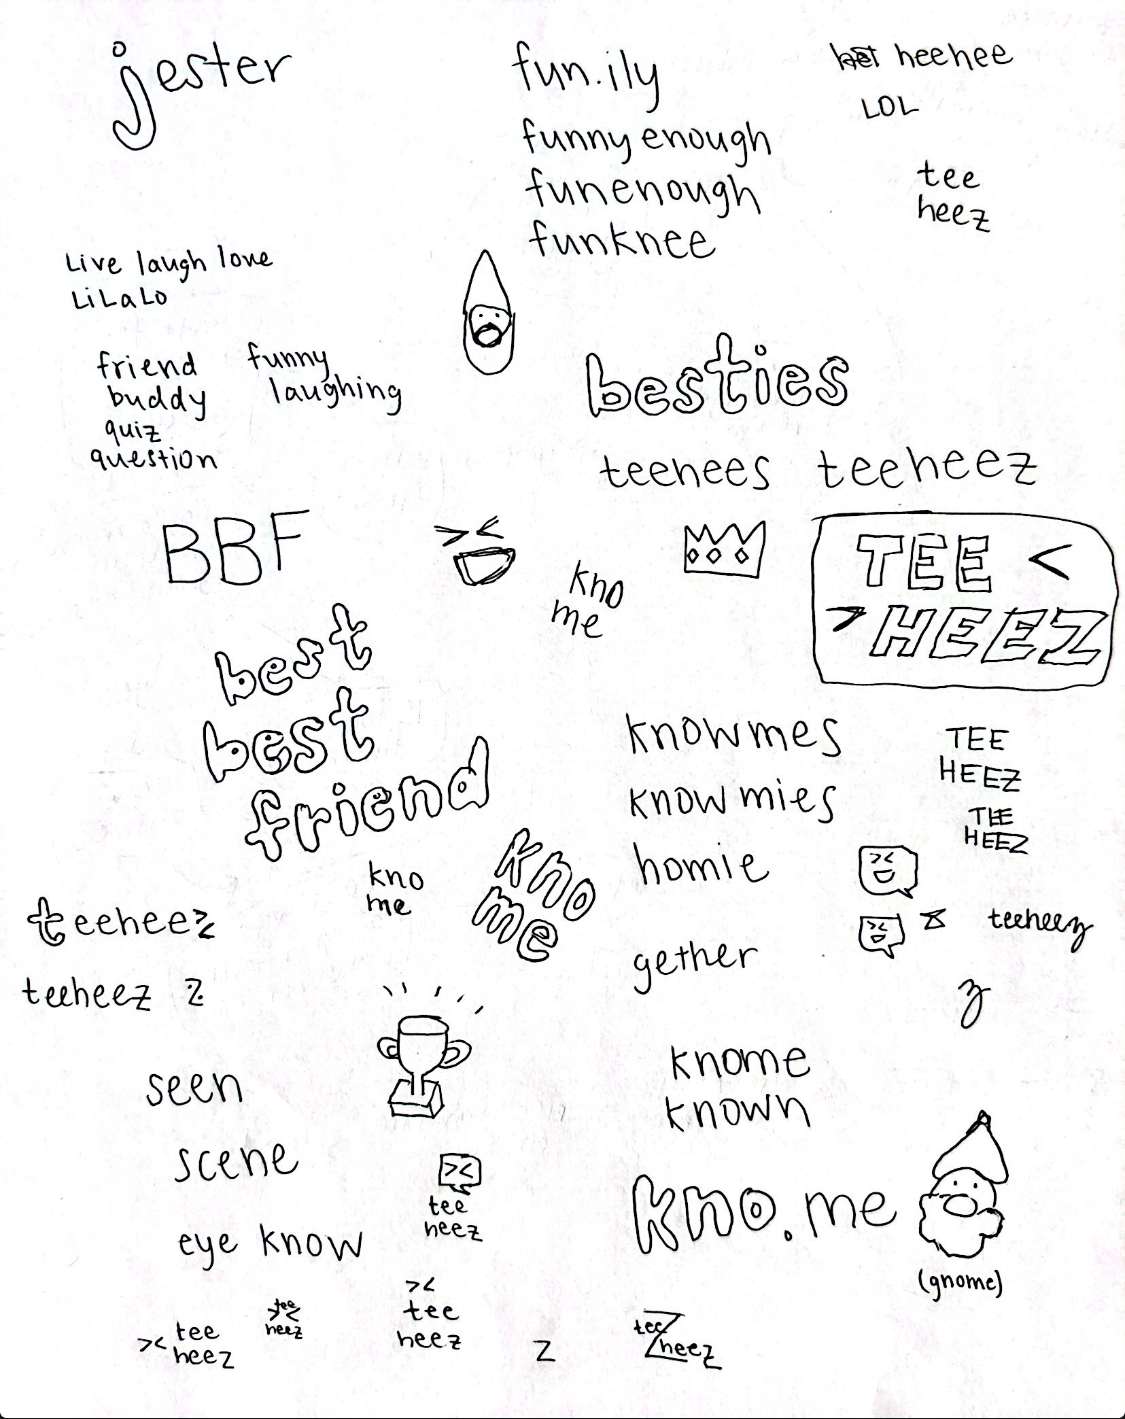 jester
fun.ily
heehee
LOL
funny enough
funenough
funknee
tee
heez
Live laugh love
LiLaLo
friend
buddy
quiz
question
funny
laughing
besties
teehees teeheez
BBF
kno
me
TEE <
> HEEZ
best
best
friend
knowmes
knowmies
homie
gether
TEE
HEEZ
TEE
HEEZ
kno
me
kno
me
teeheez
teeheez z
teeheez
z
seen
scene
eye know
knome
known
kno.me
(gnome)
><
tee
heez
>< tee
heez
tee
><
heez
><
tee
heez
z
tee
heez